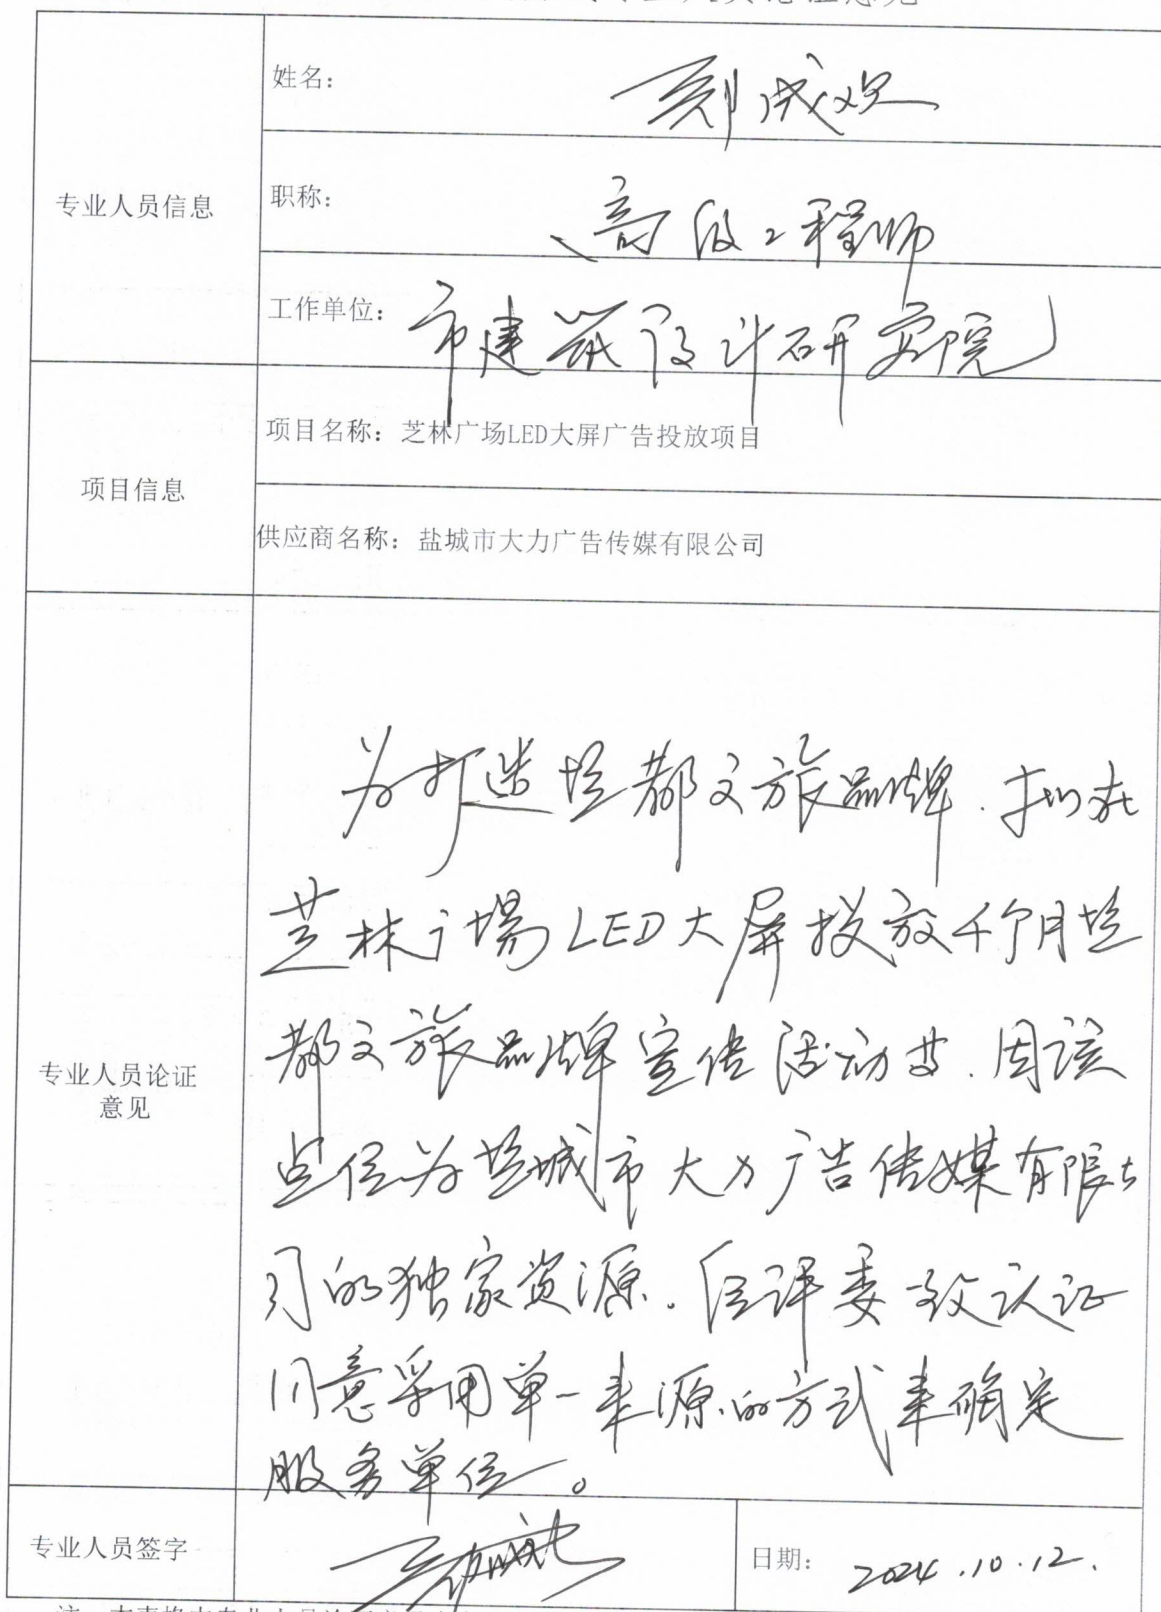 专业人员信息
姓名：
职称：高级工程师
工作单位：市建筑设计研究院
项目信息
项目名称：芝林广场LED大屏广告投放项目
供应商名称：盐城市大力广告传媒有限公司
专业人员论证
意见
为打造盐都文旅品牌，拟在
芝林广场LED大屏投放个月盐
都文旅品牌宣传活动等，因该
点位为盐城市大力广告传媒有限公
司的独家资源。经评委一致认证
同意采用单一来源的方式来确定
服务单位。
专业人员签字
日期：2024.10.12.